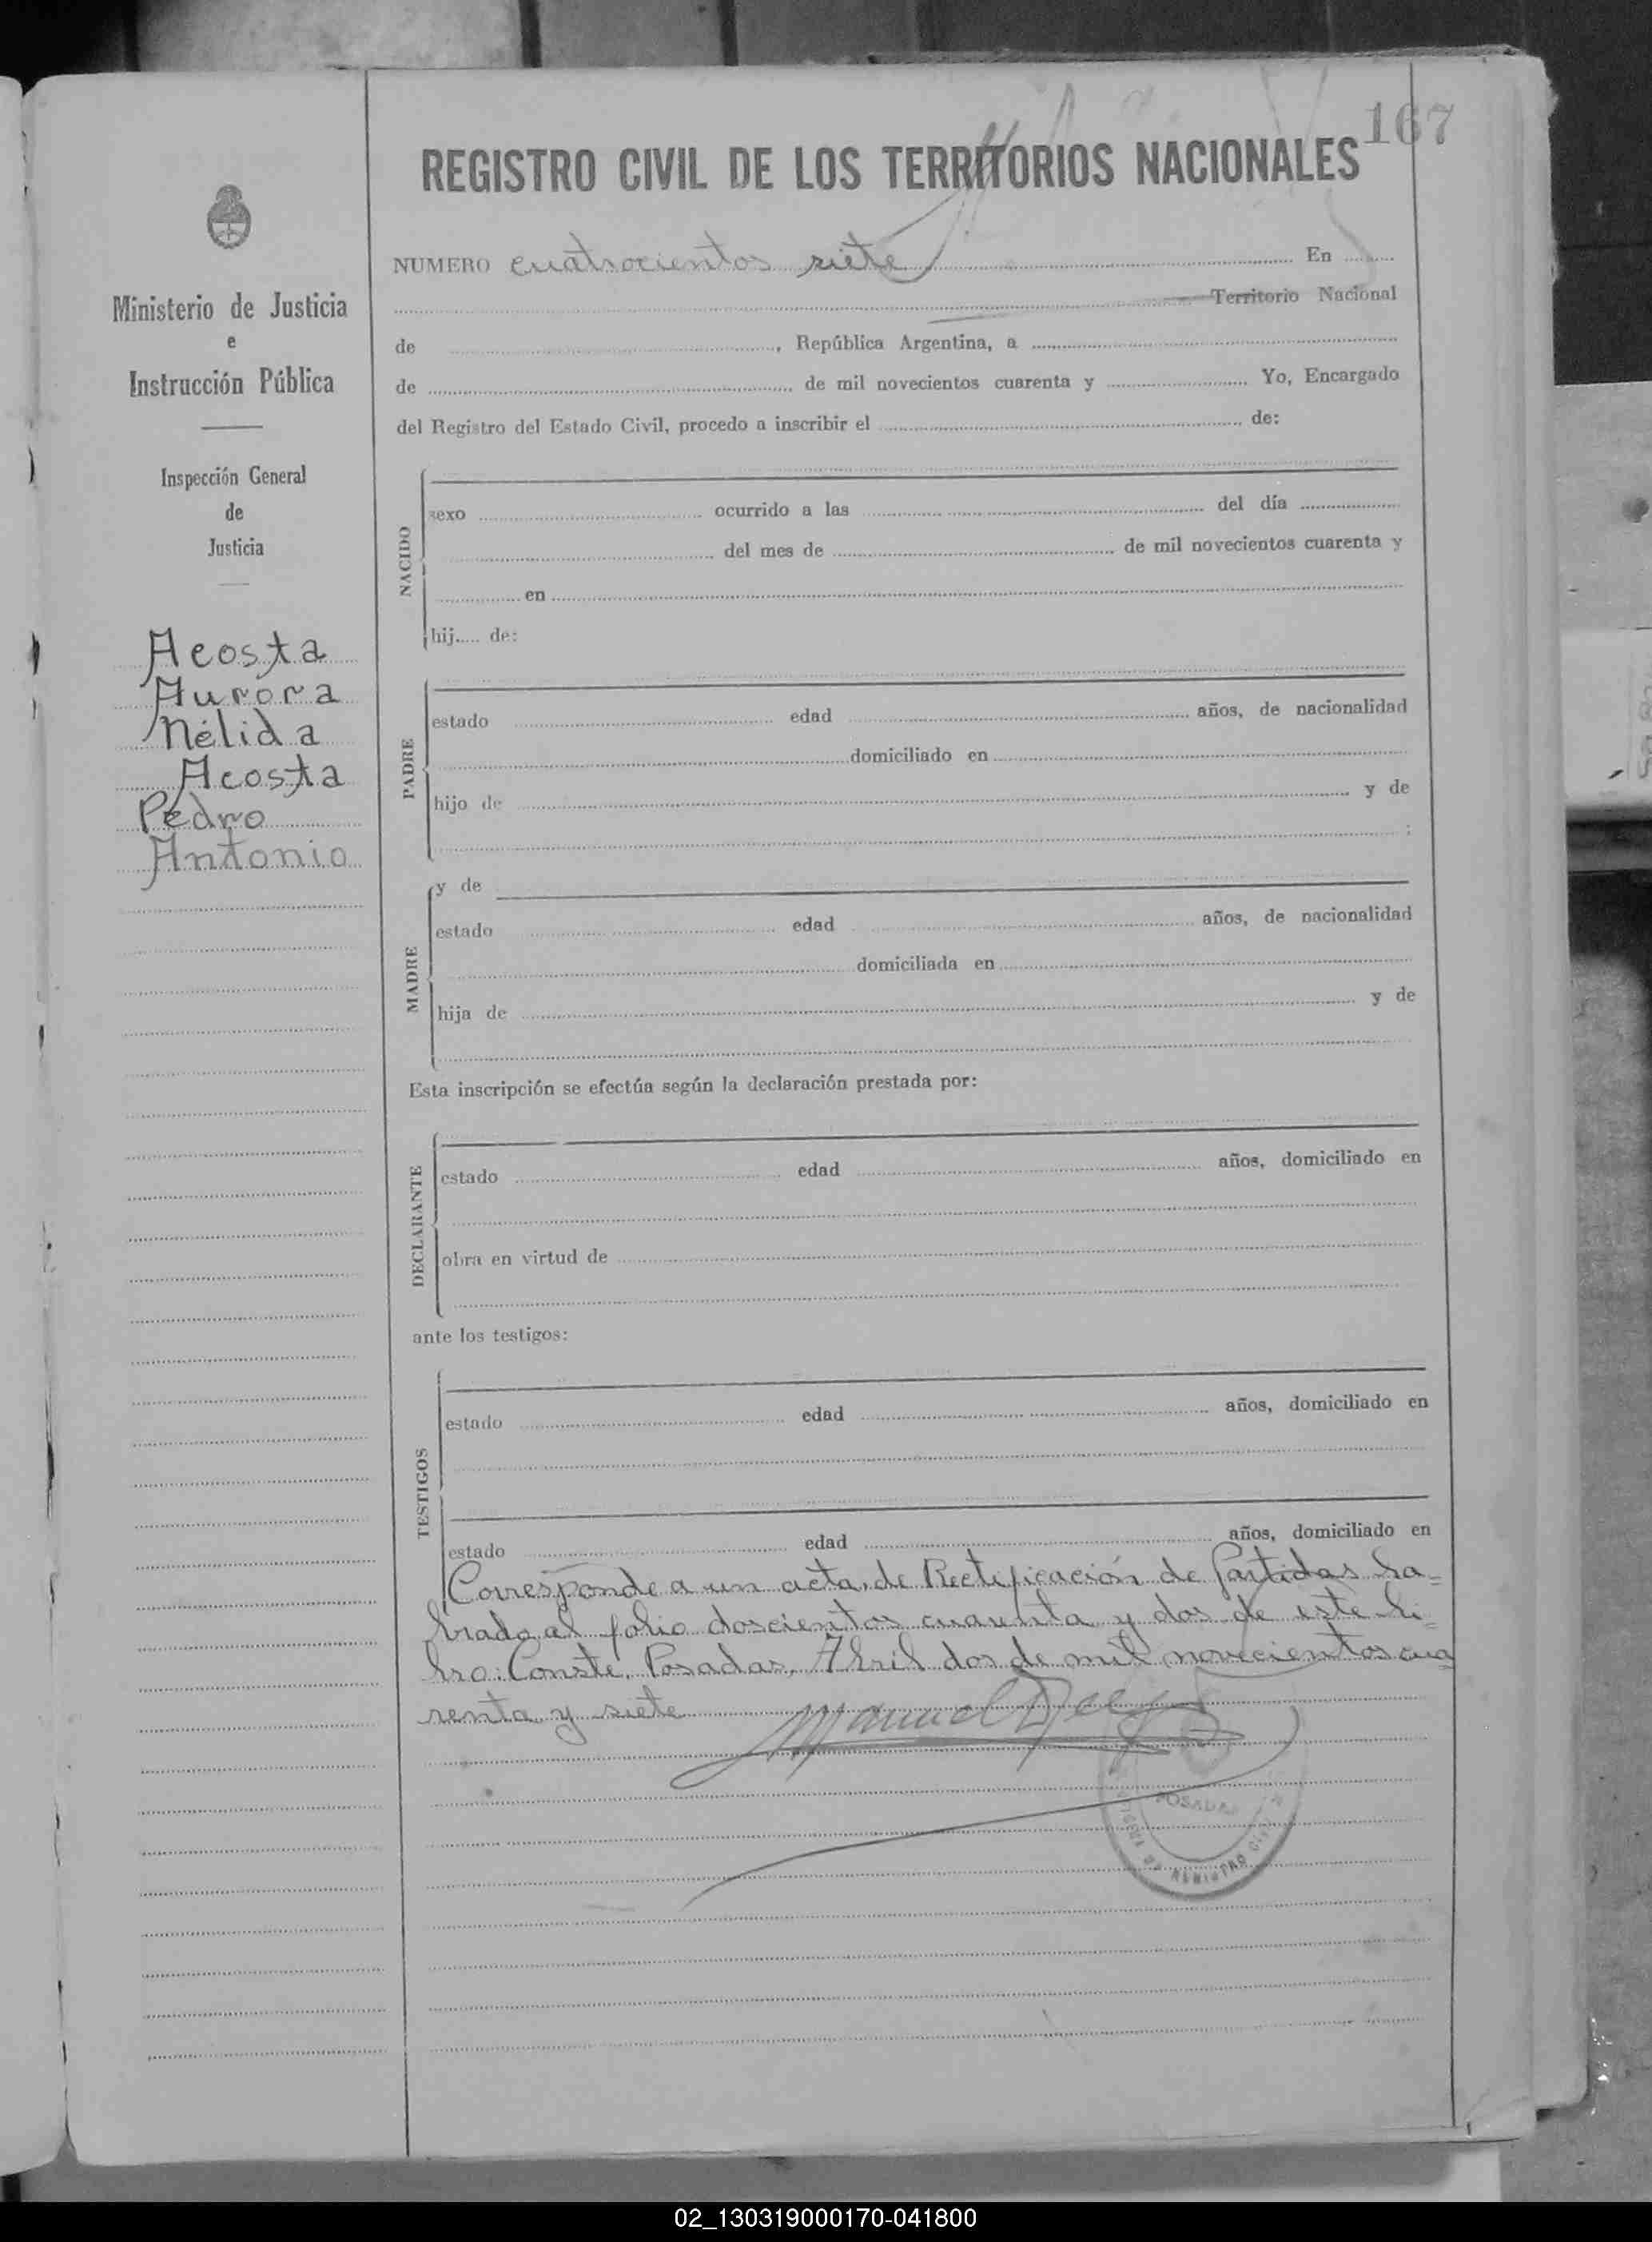 167
REGISTRO CIVIL DE LOS TERRITORIOS NACIONALES
NUMERO cuatrocientos siete En
Territorio Nacional
de , República Argentina, a
de de mil novecientos cuarenta y Yo, Encargado
del Registro del Estado Civil, procedo a inscribir el de:
Ministerio de Justicia
e
Instrucción Pública
Inspección General
de
Justicia
Acosta
Aurora
Nélida
Acosta
Pedro
Antonio
NACIDO
sexo ocurrido a las del día
del mes de de mil novecientos cuarenta y
en
hij..... de:
PADRE
estado edad años, de nacionalidad
domiciliado en
hijo de y de
;
MADRE
y de
estado edad años, de nacionalidad
domiciliada en
hija de y de
Esta inscripción se efectúa según la declaración prestada por:
DECLARANTE
estado edad años, domiciliado en
obra en virtud de
ante los testigos:
TESTIGOS
estado edad años, domiciliado en
estado edad años, domiciliado en
Corresponde a un acta de Rectificación de Partidas la=
brada al folio doscientos cuarenta y dos de este li=
bro: Conste. Posadas, Abril dos de mil novecientos cua
renta y siete
Manuel
POSADAS
REGISTRO CIVIL
02_130319000170-041800